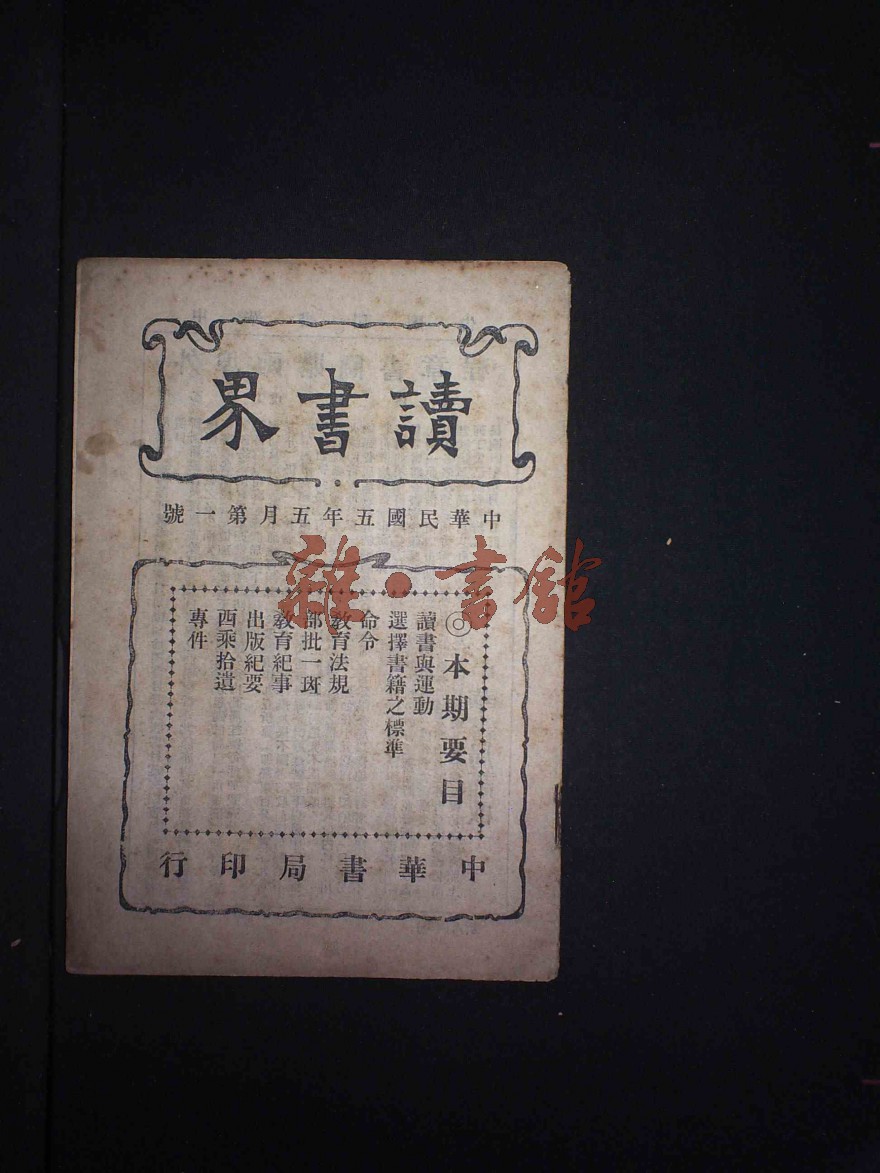 讀書界
中華民國五年五月第一號
◎本期要目
讀書與運動
選擇書籍之標準
命令
教育法規
部批一斑
教育紀事
出版紀要
西乘拾遺
專件
中華書局印行
雜·書館